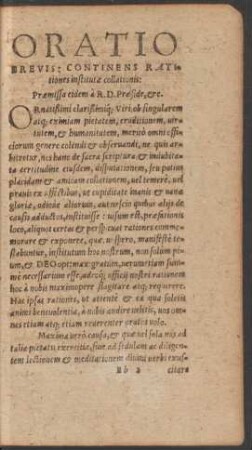 ORATIO
BREVIS; CONTINENS RATI-
tiones institutæ collationis:
Præmissa eidem à R.D. Præside, &c.
ORnatissimi clarissimiq; Viri, ob singularem
atq; eximiam pietatem, eruditionem, vir-
tutem, & humanitatem, meritò omni offi-
ciorum genere colendi & observandi, ne quis ar-
bitretur, nos hanc de sacra scriptura & indubitata
certitudine eiusdem, disputationem, seu potius
placidam & amicam collationem, vel temerè, vel
pravis ex affectibus, ut cupiditate inanis & vanæ
gloriæ, odiove aliorum, aut
causis adductos, instituisse: usum est, præfationis
loco, aliquot certas & perspicuas rationes comme-
morare & exponere, quæ, ut spero, manifestè te-
stabuntur, institutum hoc nostrum, non solùm pi-
um, & DEO optimæ gratum, verumetiam sum-
mè necessarium esse, adeoq; officij nostri rationem
hoc à nobis
Has ipsas rationes, ut attentè & ea qua soletis
animi benevolentia, à nobis audire velitis, vos om-
nes etiam atq; etiam reverenter oratos volo.
Maxima verò causa, & quæ vel sola nos ad
talia pietatis exercitia, sive ad sedulam ac diligen-
tem lectionem & meditationem divini verbi exusci-
Bb 2 citare